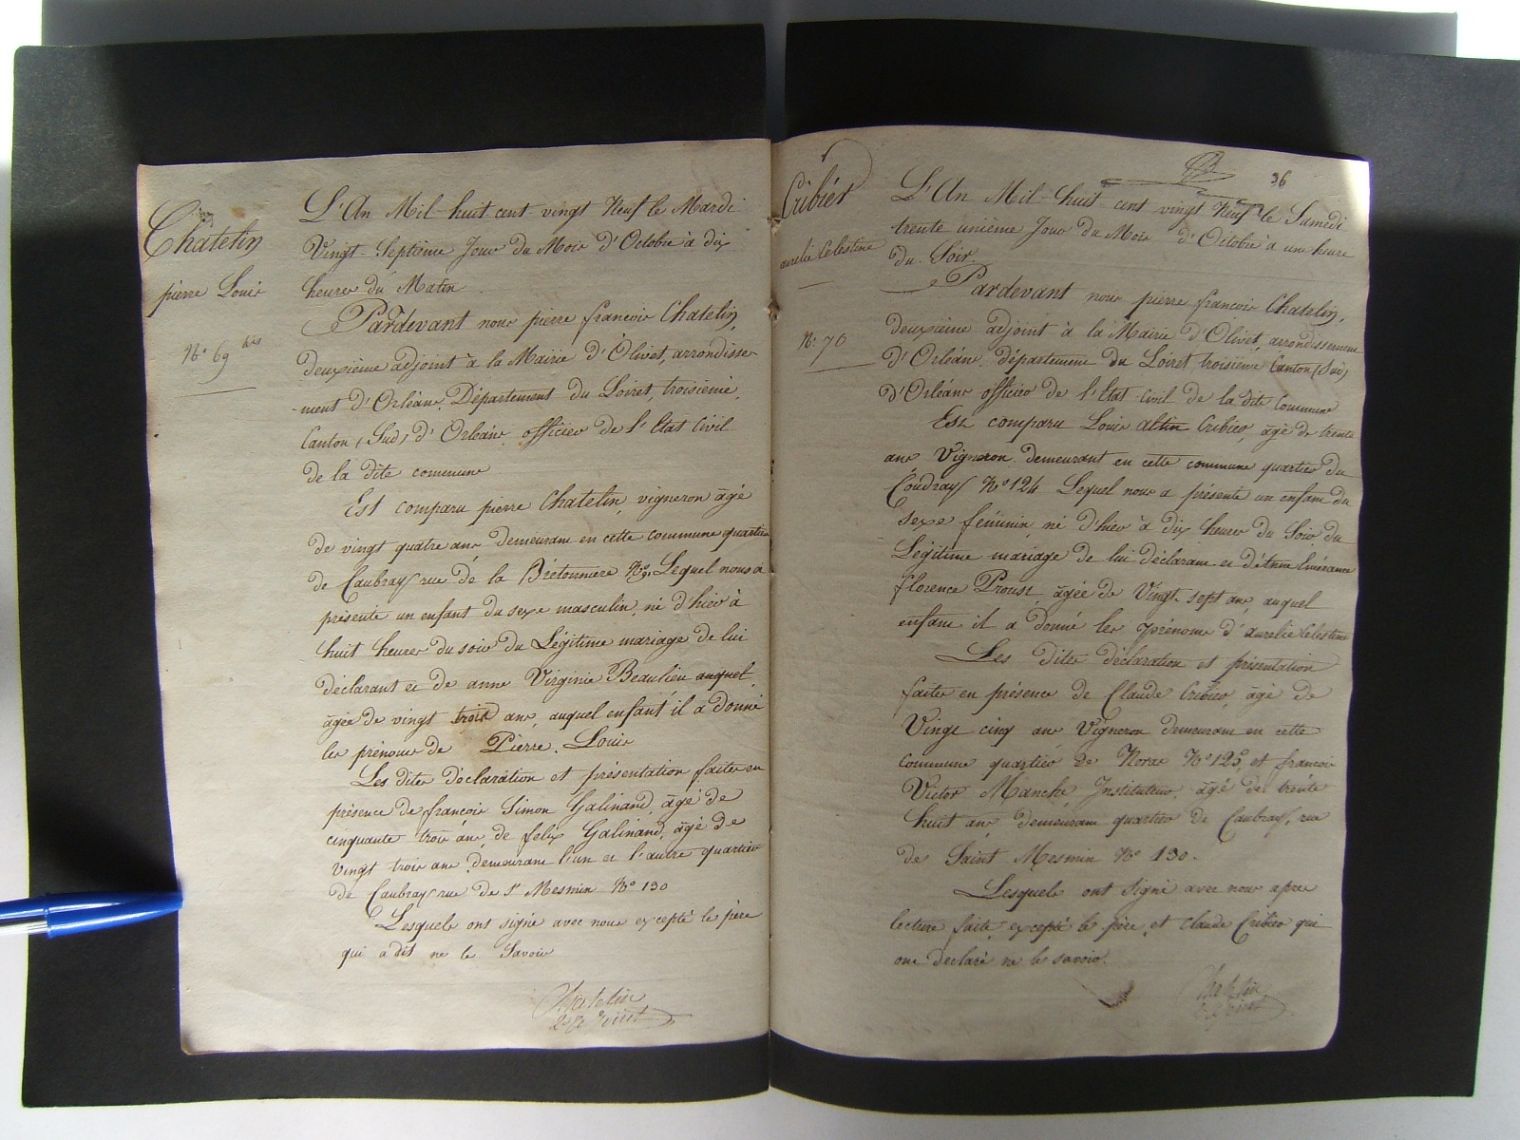 Chatelin
pierre Louis
N° 69 bis
L'An Mil-huit cent vingt Neuf le Mardi
Vingt-Septieme Jour du Mois d'Octobre à dix
heures du Matin
Pardevant nous pierre francois Chatelin,
deuxieme adjoint à la Mairie d'Olivet, arrondisse-
-ment d'Orléans, Département du Loiret, troisieme,
Canton (Sud) d'Orléans officier de l'Etat Civil
de la dite commune
Est comparu pierre Chatelin, vigneron âgé
de vingt quatre ans demeurant en cette commune quartier
de Caubray rue de la Bretonniere N° Lequel nous a
présenté un enfant du sexe masculin, né d'hier à
huit heures du soir du Légitime mariage de lui
déclarant et de anne Virginie Beaulieu auquel
âgée de vingt trois ans, auquel enfant il a donné
les prénoms de Pierre. Louis
Les dites déclaration et présentation faites en
présence de francois Simon Galinand, âgé de
cinquante trois ans, de felix Galinand, âgé de
vingt trois ans demeurant l'un et l'autre quartier
de Caubray rue de St Mesmin N° 130
Lesquels ont signé avec nous excepté le père
qui a dit ne le Savoir
Chatelin
Cribier
aurelie Celestine
N° 70
36
L'An Mil-huit cent vingt Neuf le Samedi
trente unieme Jour du Mois d'Octobre à un heure
du Soir.
Pardevant nous pierre francois Chatelin,
deuxieme adjoint à la Mairie d'Olivet, arrondissement
d'Orléans, département du Loiret troisieme Canton (Sud)
d'Orléans officier de l'Etat-Civil de la dite Commune
Est comparu Louis Cribier, âgé de trente
ans Vigneron demeurant en cette commune quartier du
Coudray N° 124 Lequel nous a présenté un enfant du
sexe féminin, né d'hier à dix heures du Soir du
Légitime mariage de lui déclarant et
florence Proust, âgée de Vingt sept ans, auquel
enfant il a donné les prénoms d'aurelie Celestine
Les dites déclaration et présentation
faites en présence de Claude Cribier, âgé de
Vingt cinq ans Vigneron demeurant en cette
commune quartier de N° 125, et francois
Victor Manché Instituteur, âgé de trente
huit ans, demeurant quartier de Caubray, rue
de Saint Mesmin N° 130.
Lesquels ont signé avec nous apres
lecture faite, excepté le père, et Claude Cribier qui
ont déclaré ne le savoir.
Chatelin